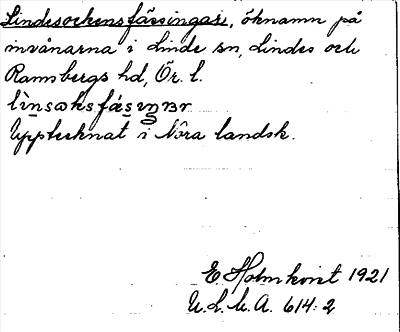 Lindesockensfåssingar, öknamn på
invånarna i Linde sn, Lindes och
Ramsbergs hd, Ör. l.
Upptecknat i Nora landsk.
E. Holmkvist 1921
U.L.M.A. 614:2